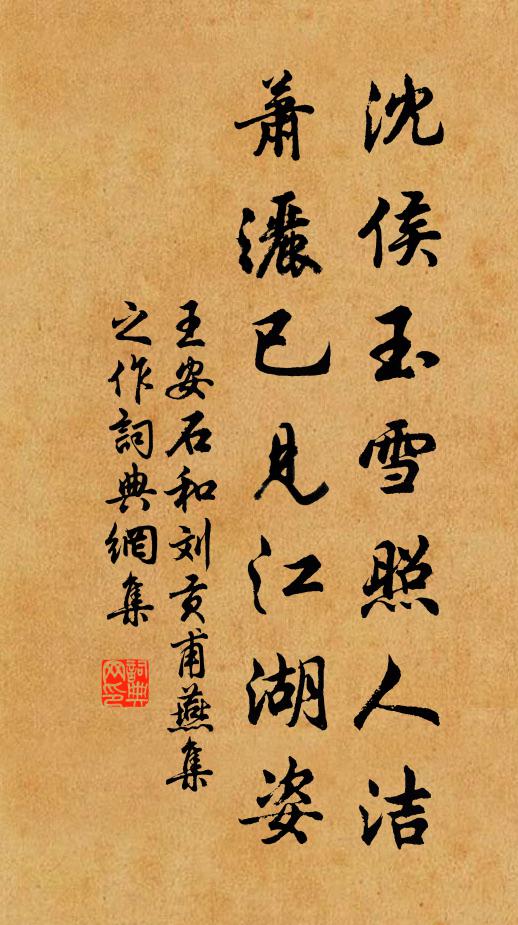 沈侯玉雪照人洁
萧灑已見江湖姿
王安石和刘贡甫燕集
之作詞典網集
詞典
网印